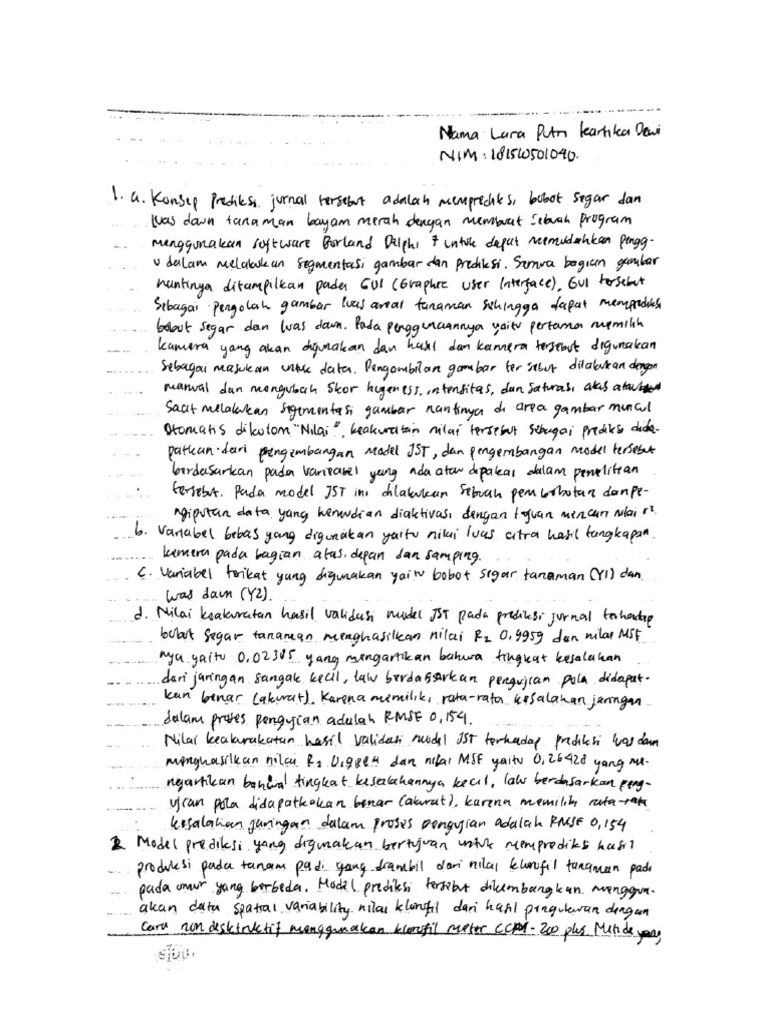 Nama Lara Putri Kartika Dewi
NIM : 181510501040.
1. a. Konsep Prediksi jurnal tersebut adalah memprediksi bobot segar dan
luas daun tanaman bayam merah dengan membuat sebuah program
menggunakan software Borland Delphi 7 untuk dapat memudahkan pengg-
u dalam melakukan segmentasi gambar dan prediksi. Semua bagian gambar
nantinya ditampilkan pada GUI (Graphic User Interface), GUI tersebut
sebagai pengolah gambar luas areal tanaman sehingga dapat memprediksi
bobot segar dan luas daun. Pada penggunaannya yaitu pertama memilih
kamera yang akan digunakan dan hasil dari kamera tersebut digunakan
sebagai masukan untuk data. Pengambilan gambar tersebut dilakukan dengan
manual dan mengubah skor hegeness, intensitas, dan saturasi atas atau
Saat melakukan segementasi gambar nantinya di area gambar muncul
otomatis dikolom "Nilai", keakuratan nilai tersebut sebagai prediksi dida-
patkan dari pengembangan model JST, dan pengembangan model tersebut
berdasarkan pada variabel yang ada atau dipakai dalam penelitian
tersebut. Pada model JST ini dilakukan sebuah pembobotan dan pe-
ngiputan data yang kemudian diaktivasi dengan tujuan mencari nilai r².
b. Variabel bebas yang digunakan yaitu nilai luas citra hasil tangkapan
kamera pada bagian atas, depan dan samping.
c. Variabel terikat yang digunakan yaitu bobot segar tanaman (Y1) dan
luas daun (Y2).
d. Nilai keakuratan hasil validasi model JST pada prediksi jurnal terhadap
bobot segar tanaman menghasilkan nilai R2 0,9959 dan nilai MSE
nya yaitu 0,02385 yang mengartikan bahwa tingkat kesalahan
dari jaringan sangak kecil, lalu berdasarkan pengujian pola didapat-
kan benar (akurat). Karena memiliki rata-rata kesalahan jaringan
dalam proses pengujian adalah RMSE 0,154.
Nilai keakurakatan hasil validasi model JST terhadap prediksi luas daun
menghasilkan nilai R2 0,9884 dan nilai MSE yaitu 0,26428 yang me-
ngartikan bahwa tingkat kesalahannya kecil, lalu berdasarkan peng-
ujian pola didapatkakan benar (akurat), karena memilih rata-rata
kesalahan jaringan dalam proses pengujian adalah RMSE 0,154
2. Model prediksi yang digunakan bertujuan untuk memprediksi hasil
produksi pada tanam padi yang diambil dari nilai klorofil tanaman padi
pada umur yang berbeda. Model prediksi tersebut dikembangkan menggun-
akan data spatial variability nilai klorofil dari hasil pengukuran dengan
cara non desktruktif menggunakan klorofil meter CCM-200 plus Metode yang